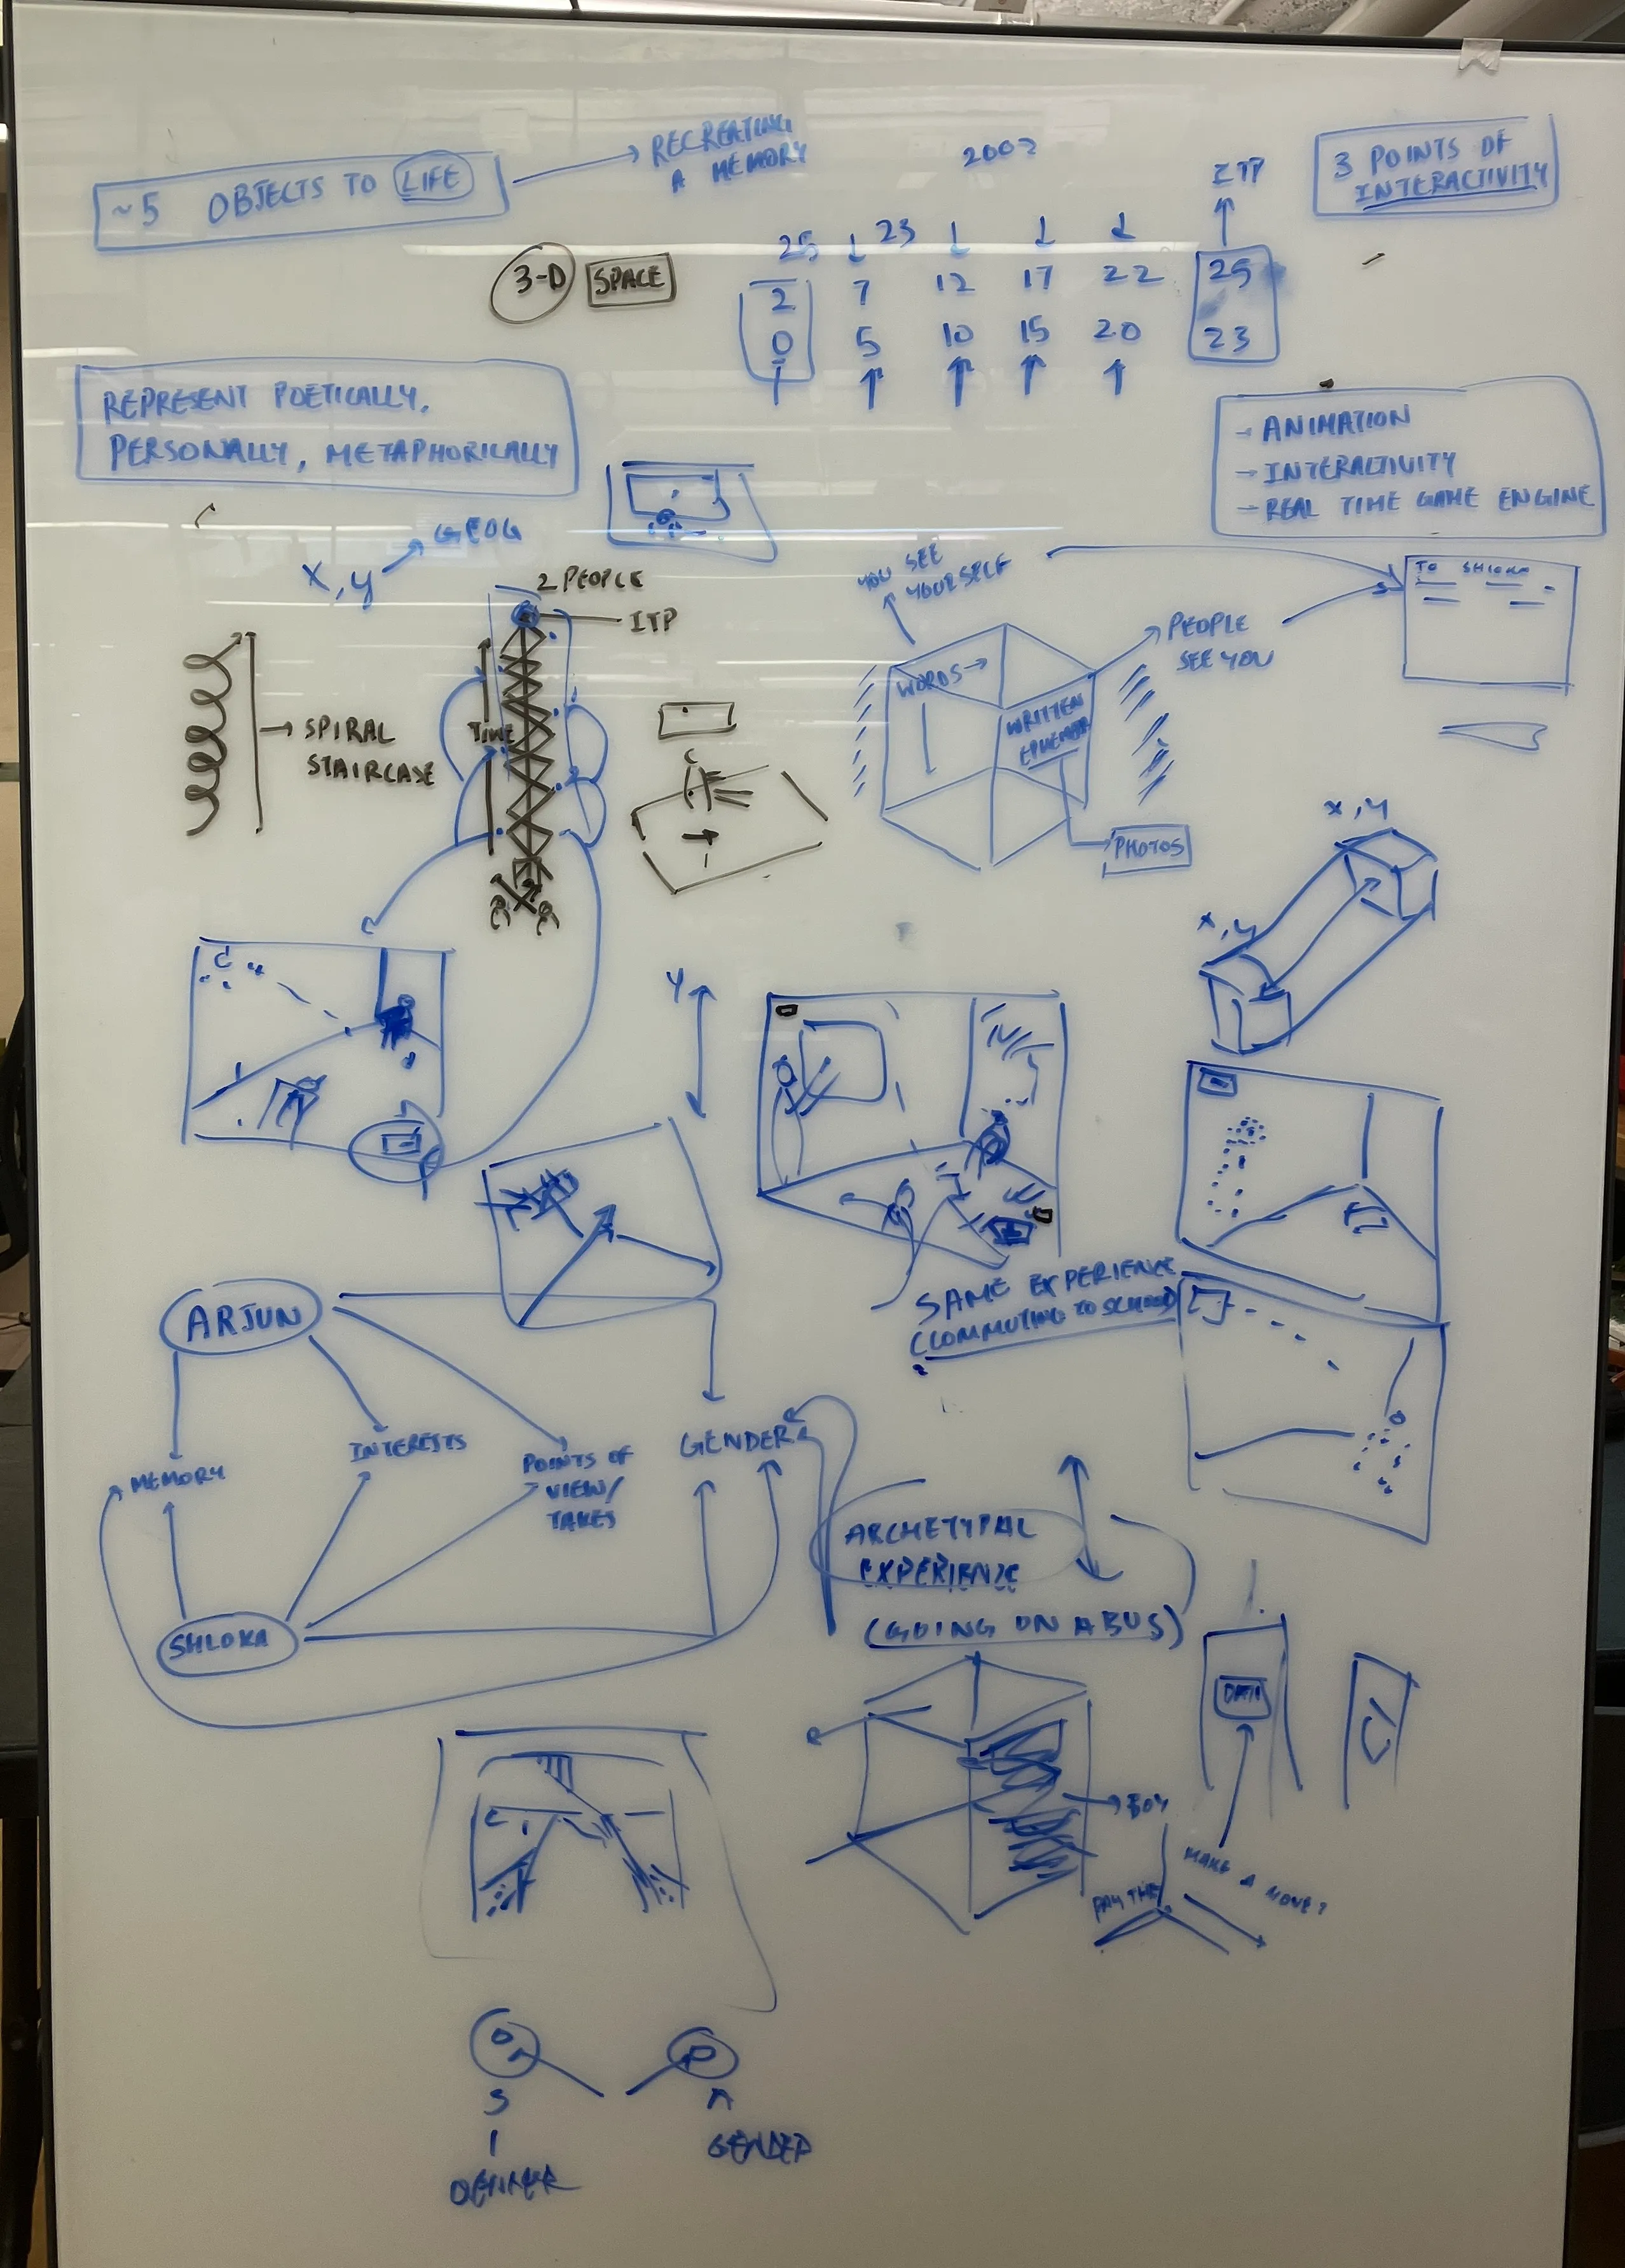 ~5 OBJECTS TO LIFE
RECREATING
A MEMORY
200?
ITP
3 POINTS OF
INTERACTIVITY
3-D SPACE
25 23
2 7 12 17 22 25
0 5 10 15 20 23
REPRESENT POETICALLY,
PERSONALLY, METAPHORICALLY
→ ANIMATION
→ INTERACTIVITY
→ REAL TIME GAME ENGINE
X, Y
GEOG
2 PEOPLE
ITP
TIME
SPIRAL
STAIRCASE
YOU SEE
YOURSELF
WORDS →
WRITTEN
PEOPLE
SEE YOU
PHOTOS
TO SHLOKA
X, Y
X, Y
Y
SAME EXPERIENCE
(COMMUTING TO SCHOOL)
ARJUN
MEMORY
INTERESTS
POINTS OF
VIEW/
TAKES
GENDER
SHLOKA
ARCHETYPAL
EXPERIENCE
(GOING ON A BUS)
DATA
BOY
MAKE A MOVE?
PAY THE
S
A
GENDER